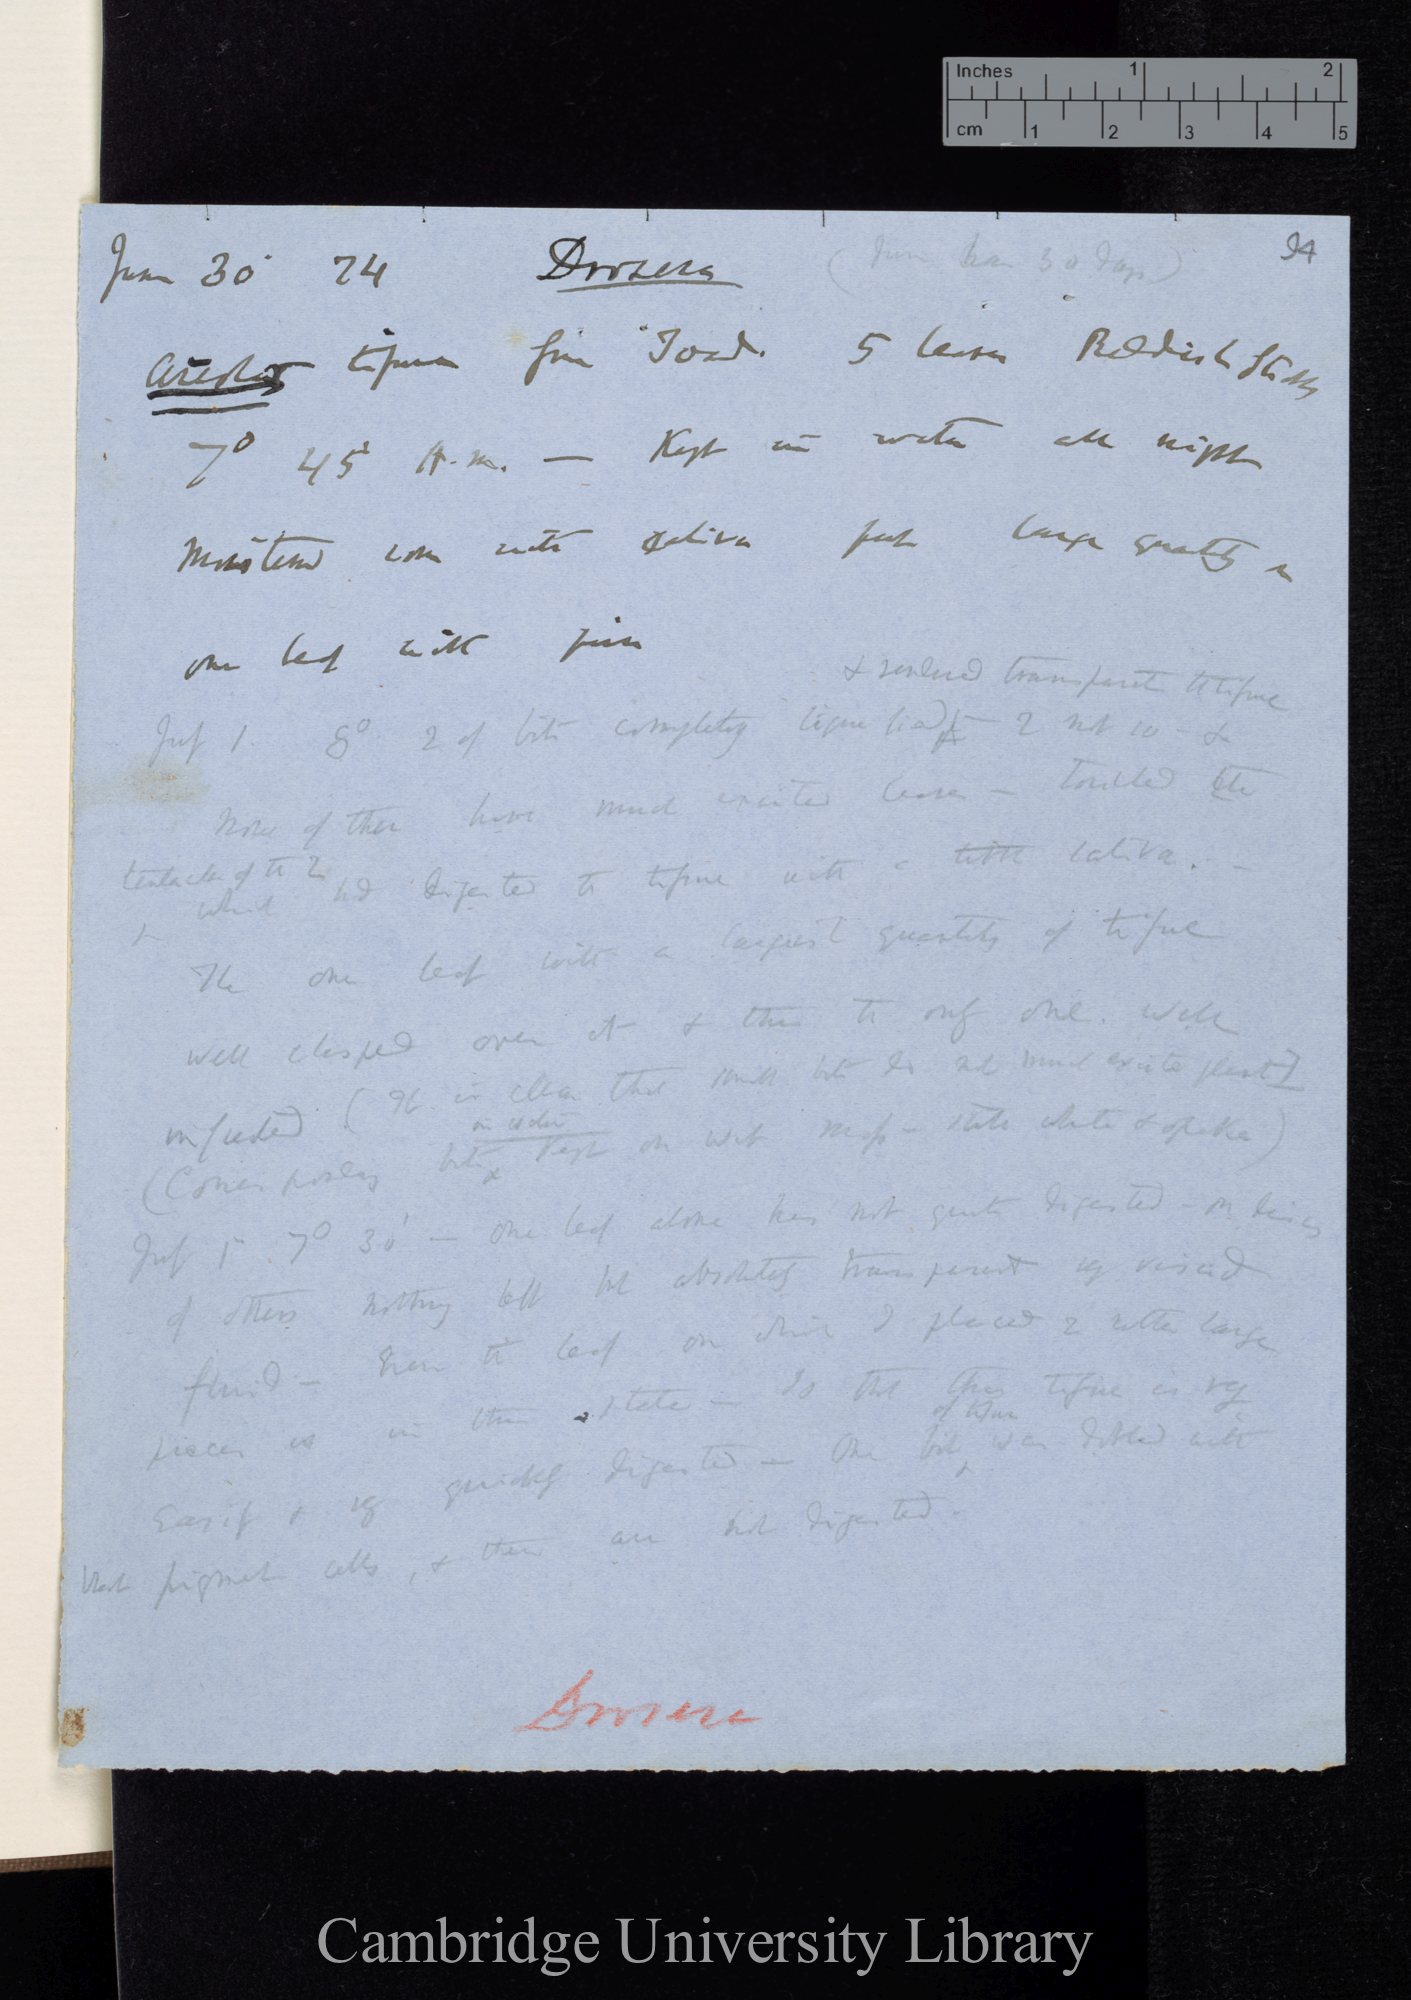 Inches 1 2
cm 1 2 3 4 5
June 30 74 Drosera (June has 30 days) 24
Areolar tissue from Toad. 5 leaves Reddish
7° 45' A.m. — Kept in water all night
Moistened some with saliva put large quantity on
one leaf with
& rendered transparent the tissue
July 1. 8° 2 of bits completely liquefied — 2 not so — &
None of them have much excited leaves — touched the
tentacles of the 2
which had digested the tissue with a little saliva. —
The one leaf with a largest quantity of tissue
well clasped over it & this the only one well
inflected [It is clear that small bits do not much excite plant]
on water
(Corresponding bits kept on wet moss — state white & opaque)
July 1 7° 30' — One leaf alone has not quite digested — on discs
of others nothing left but absolutely transparent vy viscid
fluid — Even the leaf on which I placed 2 rather large
pieces is in this state — So that this tissue is very
of tissue
easily & vy quickly digested — One bit was dotted with
black pigment cells, & these are not digested.
Drosera
Cambridge University Library